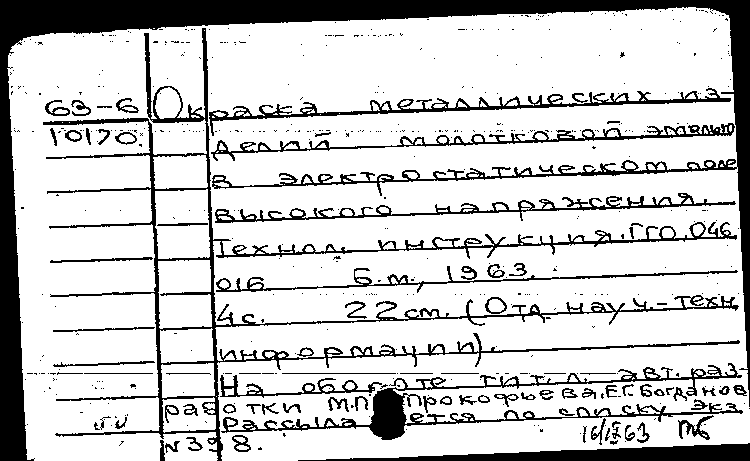 63-6 Окраска металлических из-
10170. делий молотковой эмалью
в электростатическом поле
высокого напряжения.
Технол. инструкция. ГГО.046.
016 Б.м., 1963.
4с. 22см. (Отд. науч.-техн.
информации).
На обороте тит. л. авт. раз-
работки М.П. Прокофьева, Е.Г. Богданов
Рассылается по списку. Экз.
N398. 16/IX 63